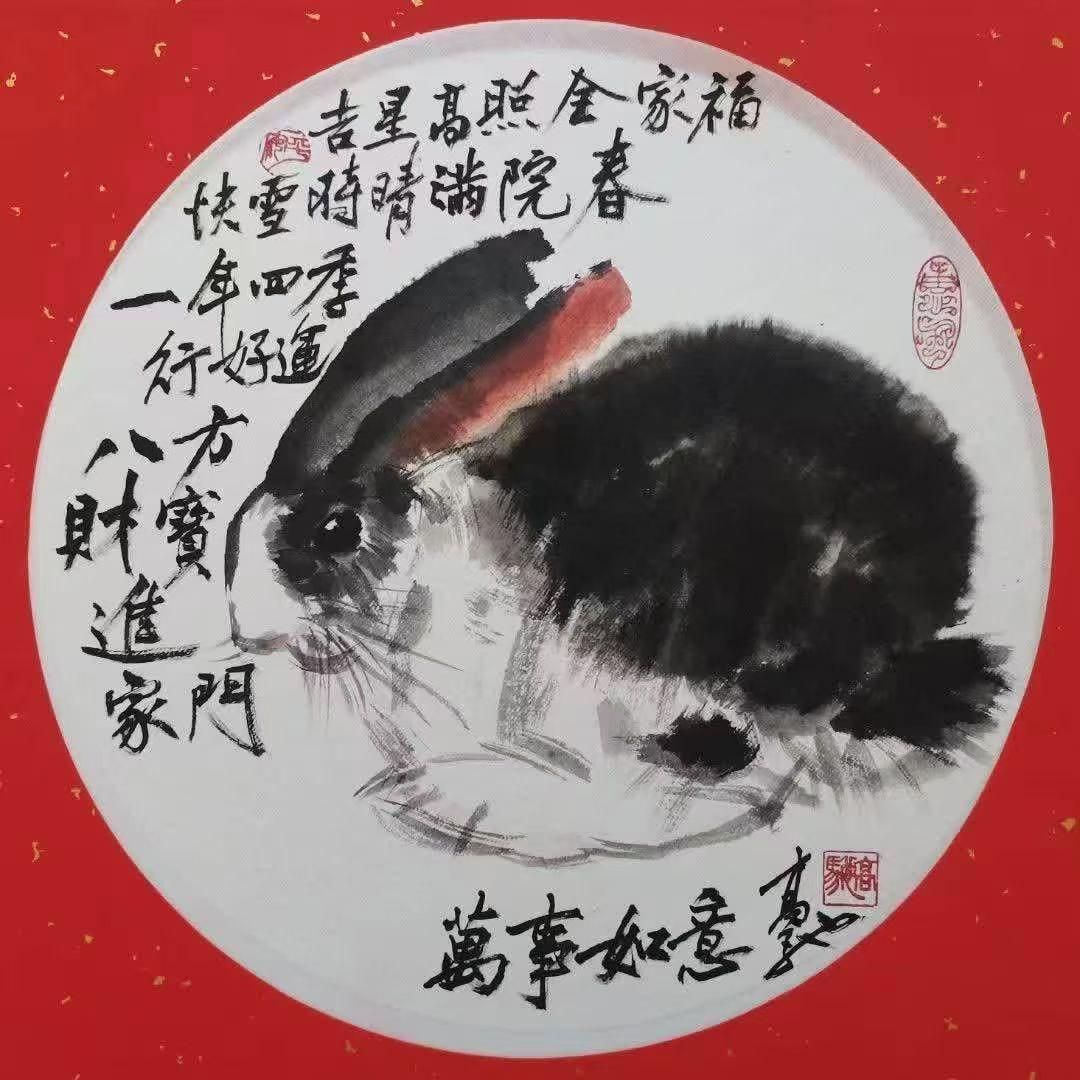 吉星高照全家福
快雪時晴滿院春
一年四季
行好運
八方
財寶
進
家門
萬事如意